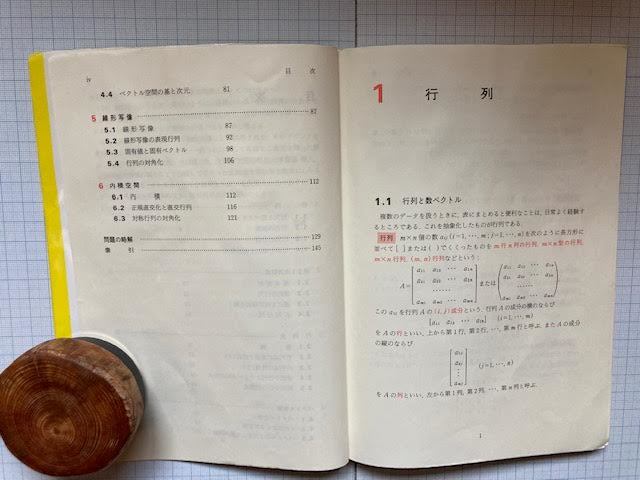 iv
目 次
4.4 ベクトル空間の基と次元 81
5 線形写像 87
5.1 線形写像 87
5.2 線形写像の表現行列 92
5.3 固有値と固有ベクトル 98
5.4 行列の対角化 106
6 内積空間 112
6.1 内 積 112
6.2 正規直交化と直交行列 116
6.3 対称行列の対角化 121
問題の略解 129
索 引 145
1 行 列
1.1 行列と数ベクトル
複数のデータを扱うときに, 表にまとめると便利なことは, 日常よく経験す
るところである. これを抽象化したものが行列である.
行列 m×n 個の数 aij (i=1, …, m ; j=1, …, n) を次のように長方形に
並べて [ ] または ( ) でくくったものを m 行 n 列の行列, m×n 型の行列,
m×n 行列, (m, n) 行列などという:
A= [ a11 a12 … a1n または ( a11 a12 … a1n
a21 a22 … a2n a21 a22 … a2n
…… ……
am1 am2 … amn ] am1 am2 … amn )
この aij を行列 A の (i, j) 成分という. 行列 A の成分の横のならび
[ai1 ai2 … ain] (i=1, …, m)
を A の行といい, 上から第1行, 第2行, …, 第 m 行と呼ぶ. また A の成分
の縦のならび
[ a1j
a2j
⋮
amj ] (j=1, …, n)
を A の列といい, 左から第1列, 第2列, …, 第 n 列と呼ぶ.
1